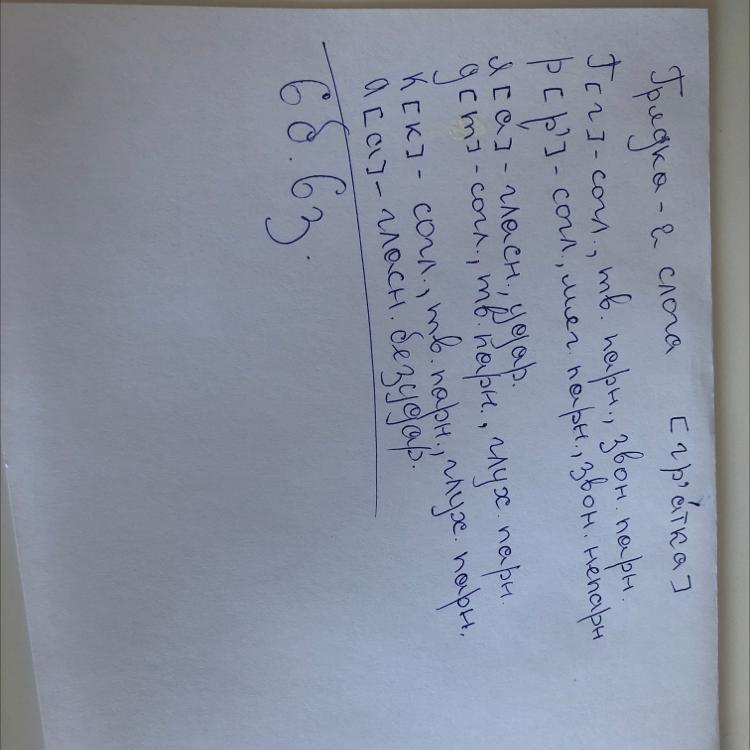 Грядка - 2 слога [гр'áтка]
Г [г] - согл., тв. парн., звон. парн.
р [р'] - согл., мяг. парн., звон. непарн
я [а] - гласн., удар.
д [т] - согл., тв. парн., глух. парн.
к [к] - согл., тв. парн., глух. парн.
а [а] - гласн. безудар.
6б. 6з.